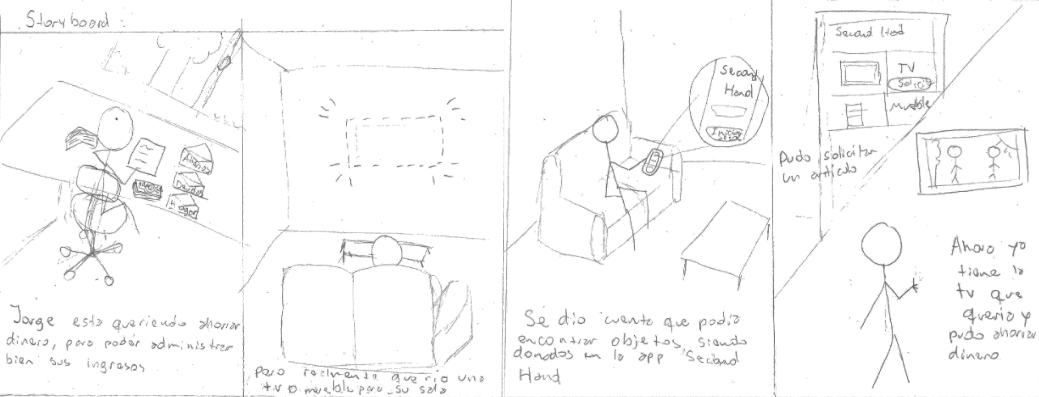 Storyboard:
Ahorro
Deudas
Hogar
Jorge esta queriendo ahorrar
dinero, para poder administrar
bien sus ingresos
Pero realmente queria una
tv o mueble para su sala
Second
Hand
Iniciar
Se dio cuenta que podia
encontrar objetos siendo
donados en la app Second
Hand
Second Hand
TV
Solicitar
Mueble
Pudo solicitar
un artículo
Ahora ya
tiene la
tv que
queria y
pudo ahorrar
dinero